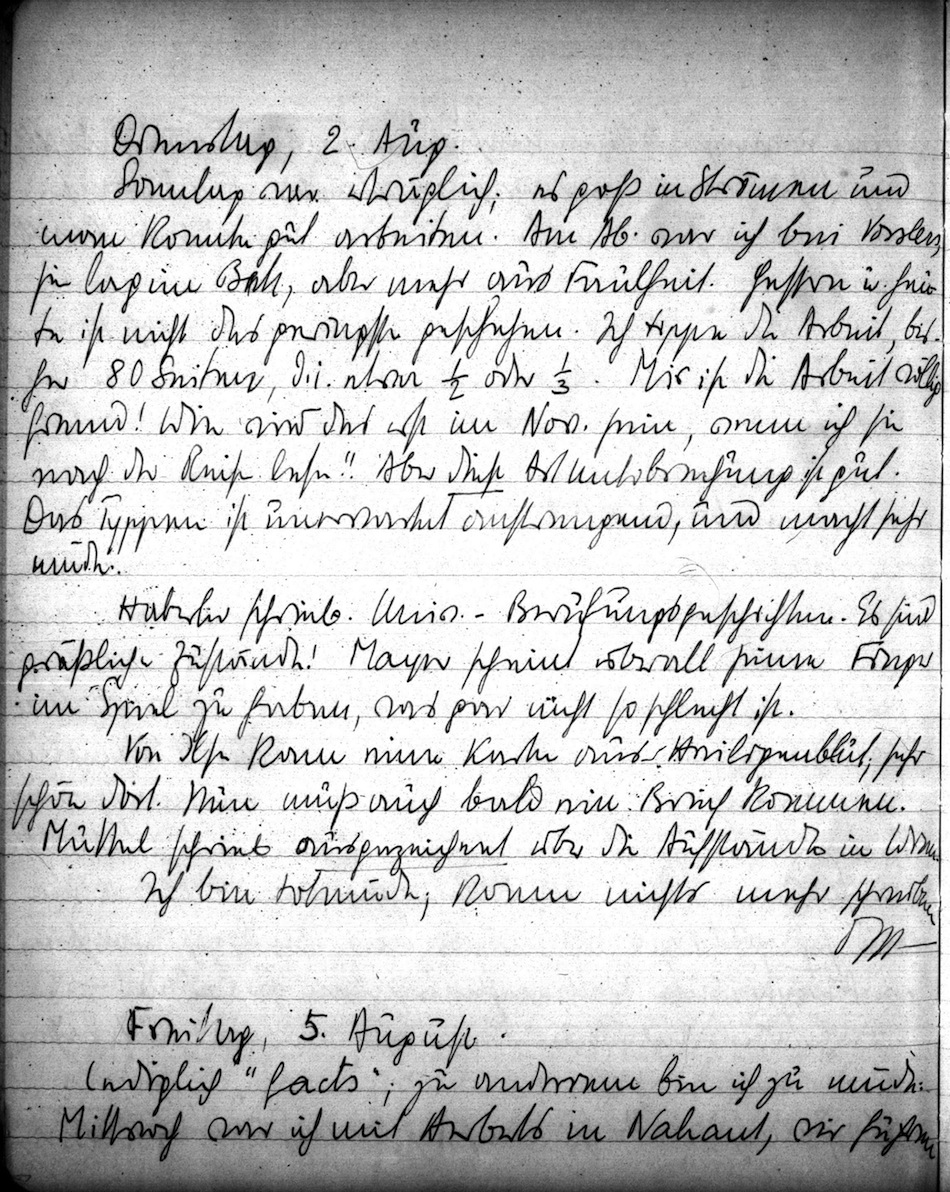 Dienstag, 2. Aug.
Sonntag war erträglich; es goß in Strömen und
man konnte gut arbeiten. Am Ab. war ich bei Vosslers,
sie lag im Bett, aber mehr aus Faulheit. Gestern u. heu-
te ist nicht das geringste geschehen. Ich tippe die Arbeit, bis-
her 80 Seiten, d.i. etwa ½ oder ⅓. Mir ist die Arbeit völlig
fremd! Wie wird das erst im Nov. sein, wenn ich sie
nach der Reise lese!! Aber diese Art Unterbrechung ist gut.
Das Typpen ist unerwartet anstrengend, und macht sehr
müde.
Haberler schrieb. Univ.- Berufungsgeschichten. Es sind
gräßliche Zustände! Mayer scheint überall seine Finger
im Spiel zu haben, was gar nicht so schlecht ist.
Von Ilse kam eine Karte aus Heiligenblut, sehr
schön dort. Nun muß auch bald ein Brief kommen.
Muttel schrieb ausgezeichnet über die Aufstände in Wien
Ich bin todmüde, kann nichts mehr schreiben
OM
Freitag, 5. August.
Lediglich "facts", zu anderem bin ich zu müde:
Mittwoch war ich mit Herberts in Nahant, wir fuhren